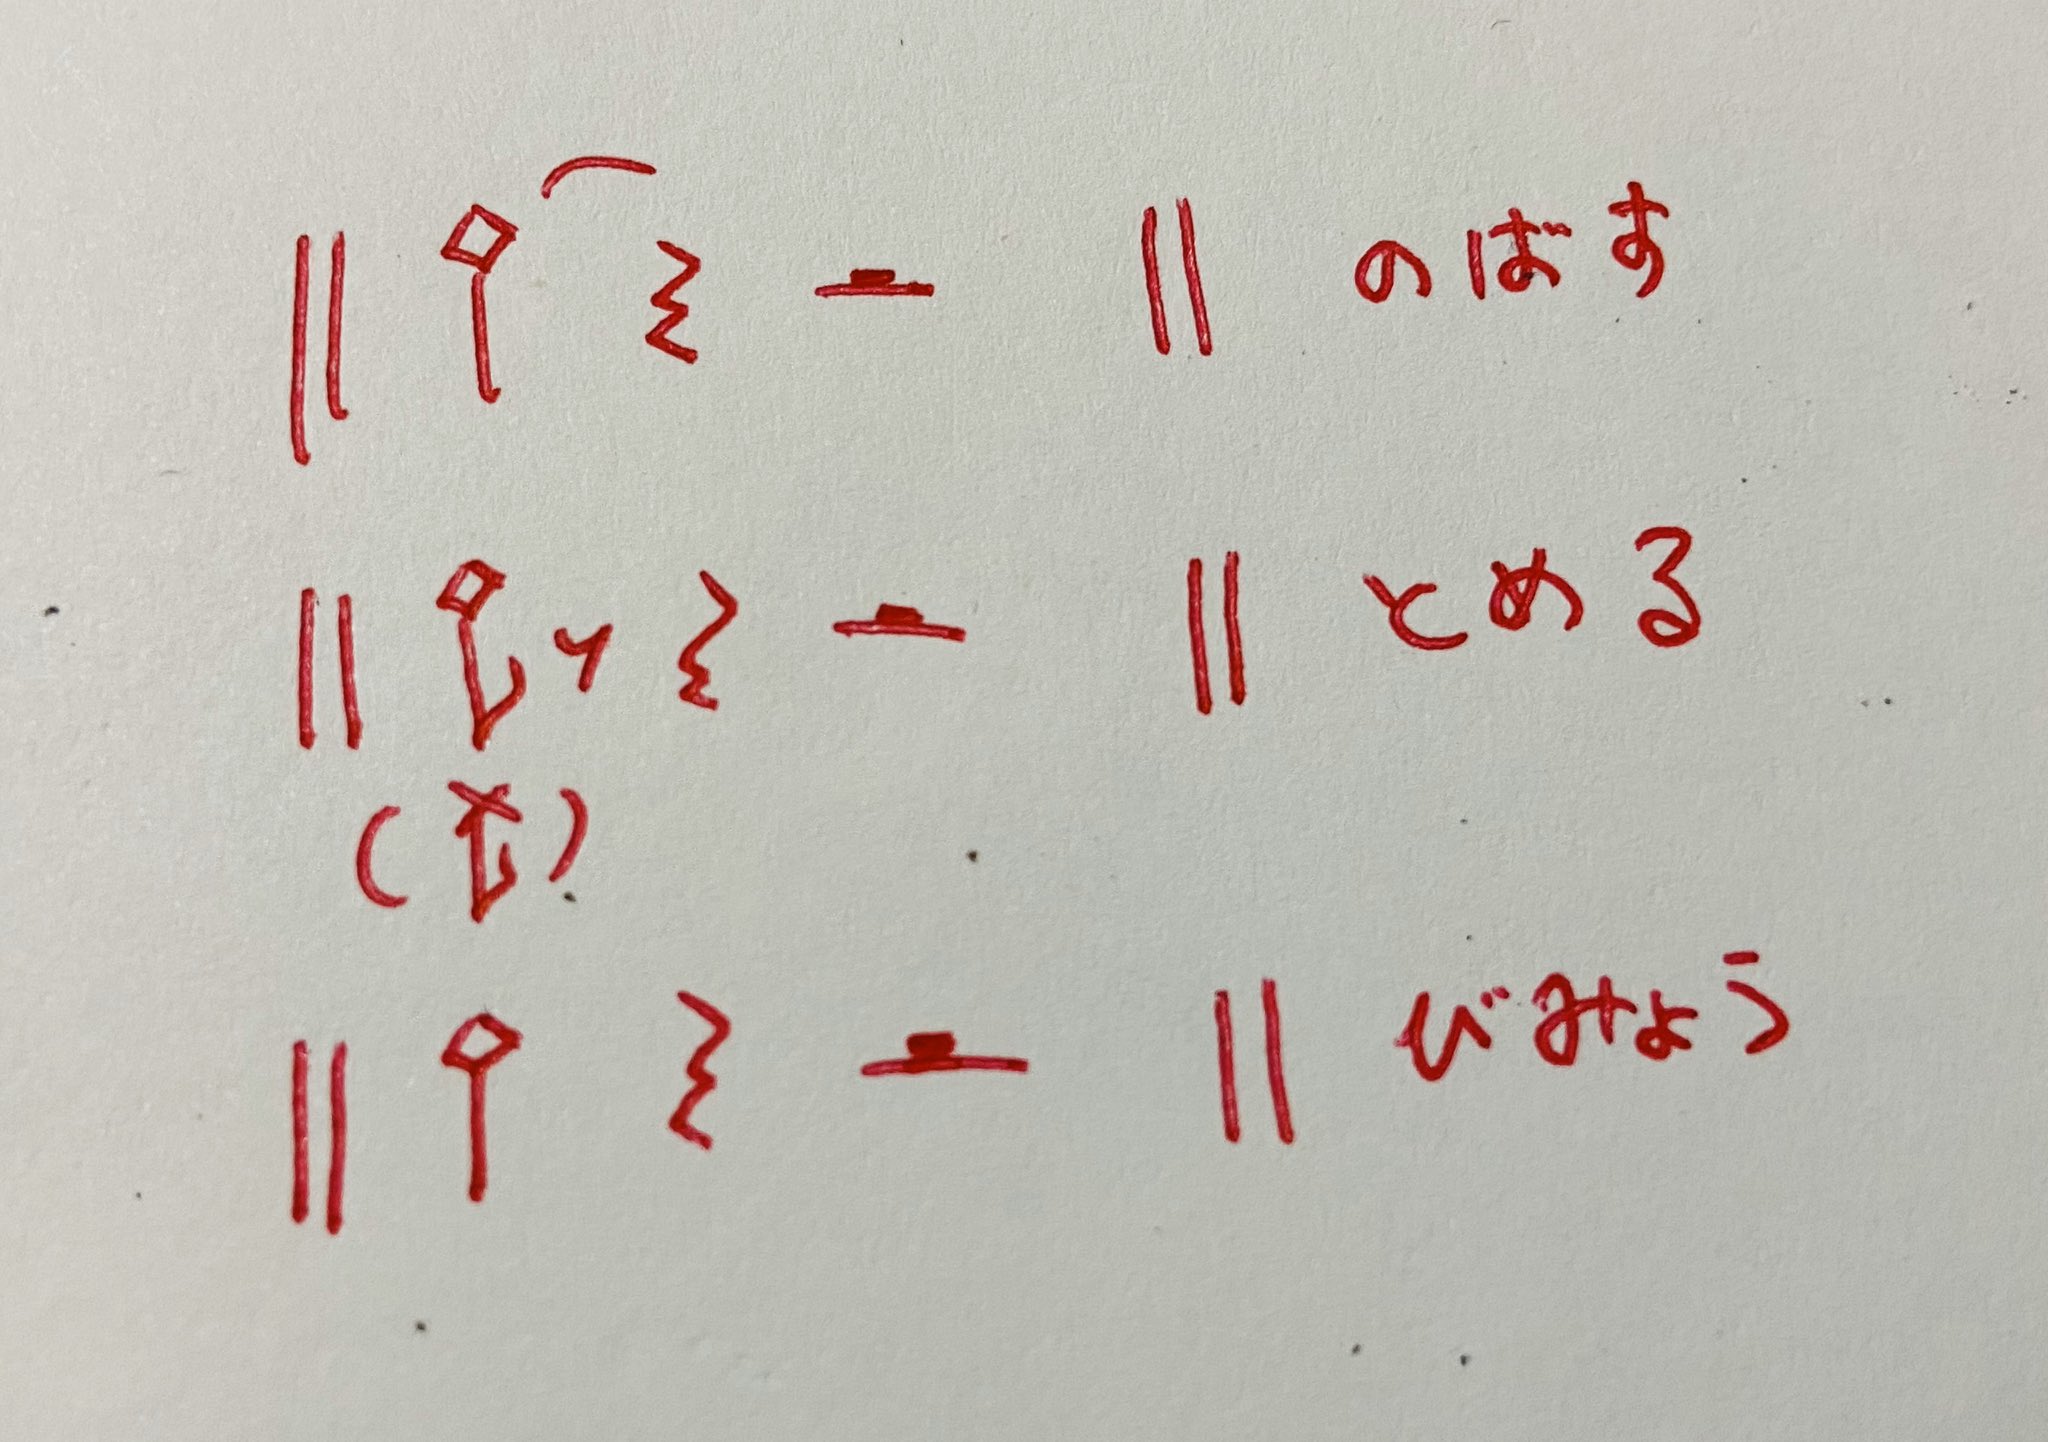 のばす
とめる
びみょう